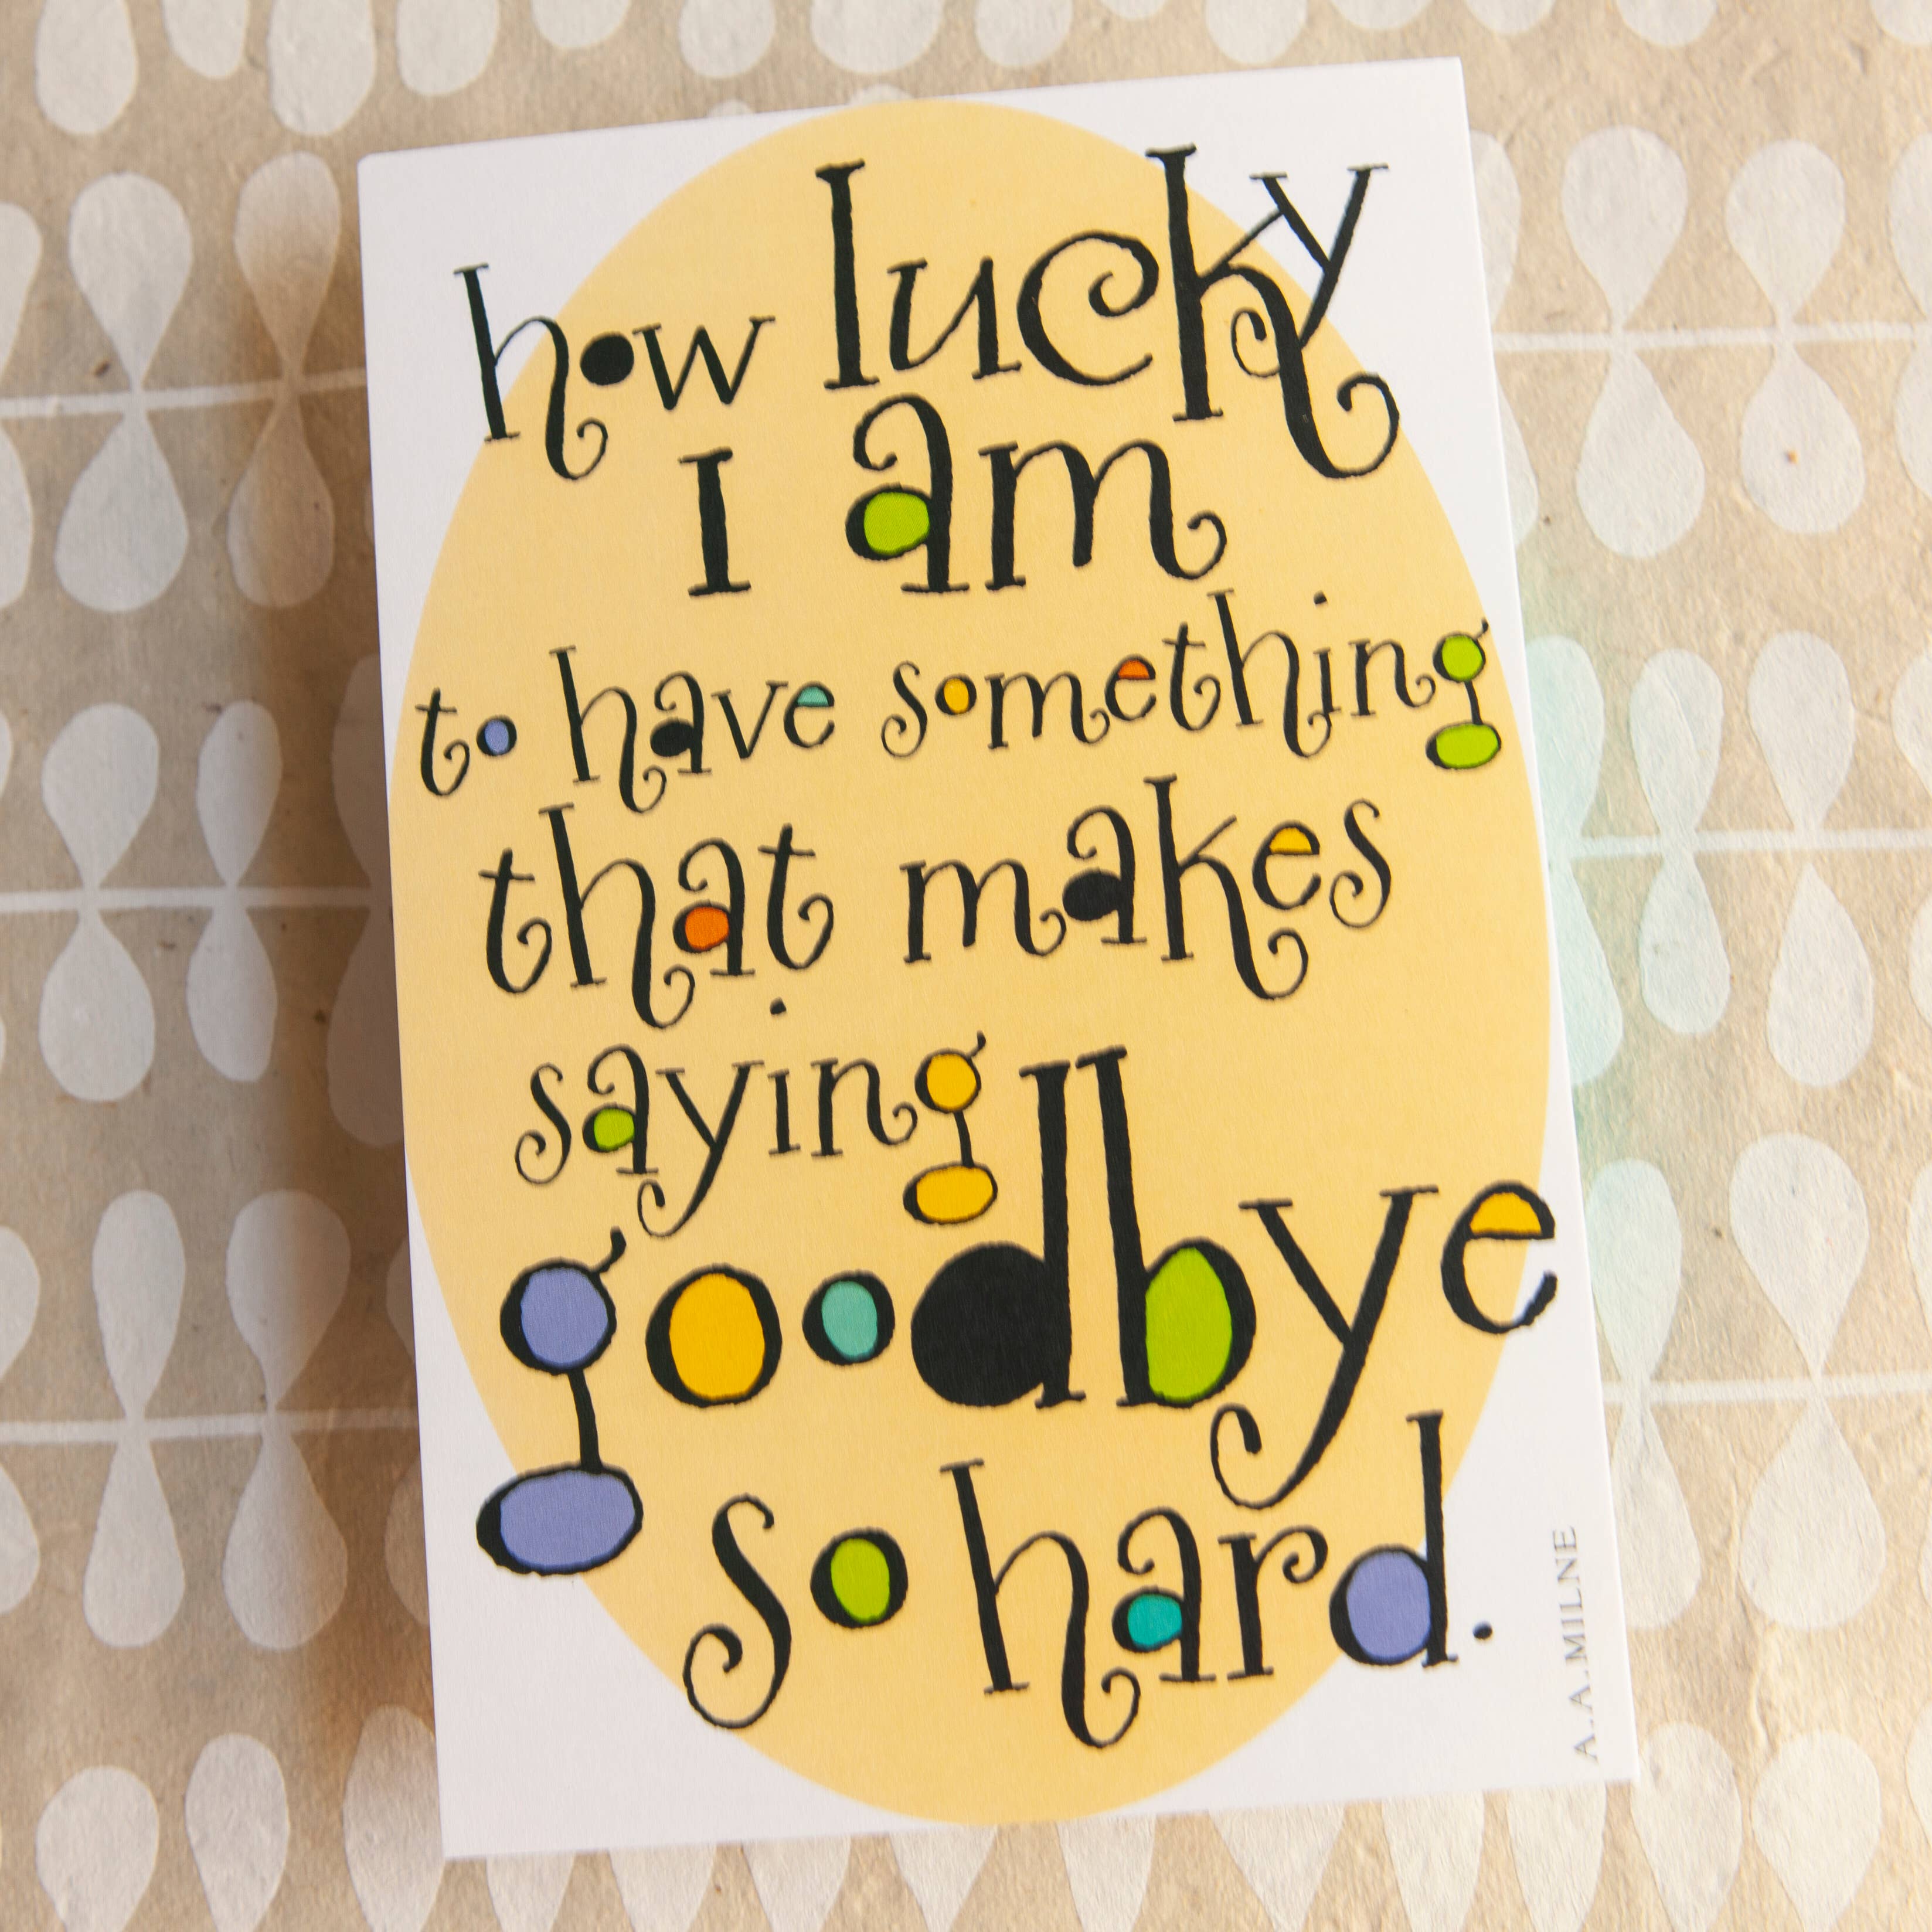 how lucky
I am
to have something
that makes
saying
goodbye
so hard.
A.A.MILNE